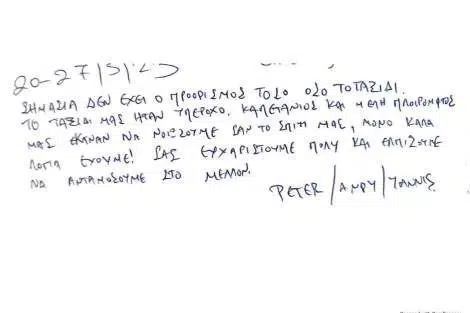 20-27/5/23
ΣΗΜΑΣΙΑ ΔΕΝ ΕΧΕΙ Ο ΠΡΟΟΡΙΣΜΟΣ ΤΟΣΟ ΟΣΟ ΤΟ ΤΑΞΙΔΙ.
ΤΟ ΤΑΞΙΔΙ ΜΑΣ ΗΤΑΝ ΥΠΕΡΟΧΟ. ΚΑΠΕΤΑΝΙΟΣ ΚΑΙ ΜΕΛΗ ΠΛΟΙΡΟΜΑΤΟΣ
ΜΑΣ ΕΚΑΝΑΝ ΝΑ ΝΟΙΣΟΥΜΕ ΣΑΝ ΤΟ ΣΠΙΤΙ ΜΑΣ, ΜΟΝΟ ΚΑΛΑ
ΛΟΓΙΑ ΕΧΟΥΜΕ! ΣΑΣ ΕΥΧΑΡΙΣΤΟΥΜΕ ΠΟΛΥ ΚΑΙ ΕΛΠΙΖΟΥΜΕ
ΝΑ ΑΝΤΑΜΟΣΟΥΜΕ ΣΤΟ ΜΕΛΛΟΝ.
PETER/ANDY/ΓΙΑΝΝΗΣ